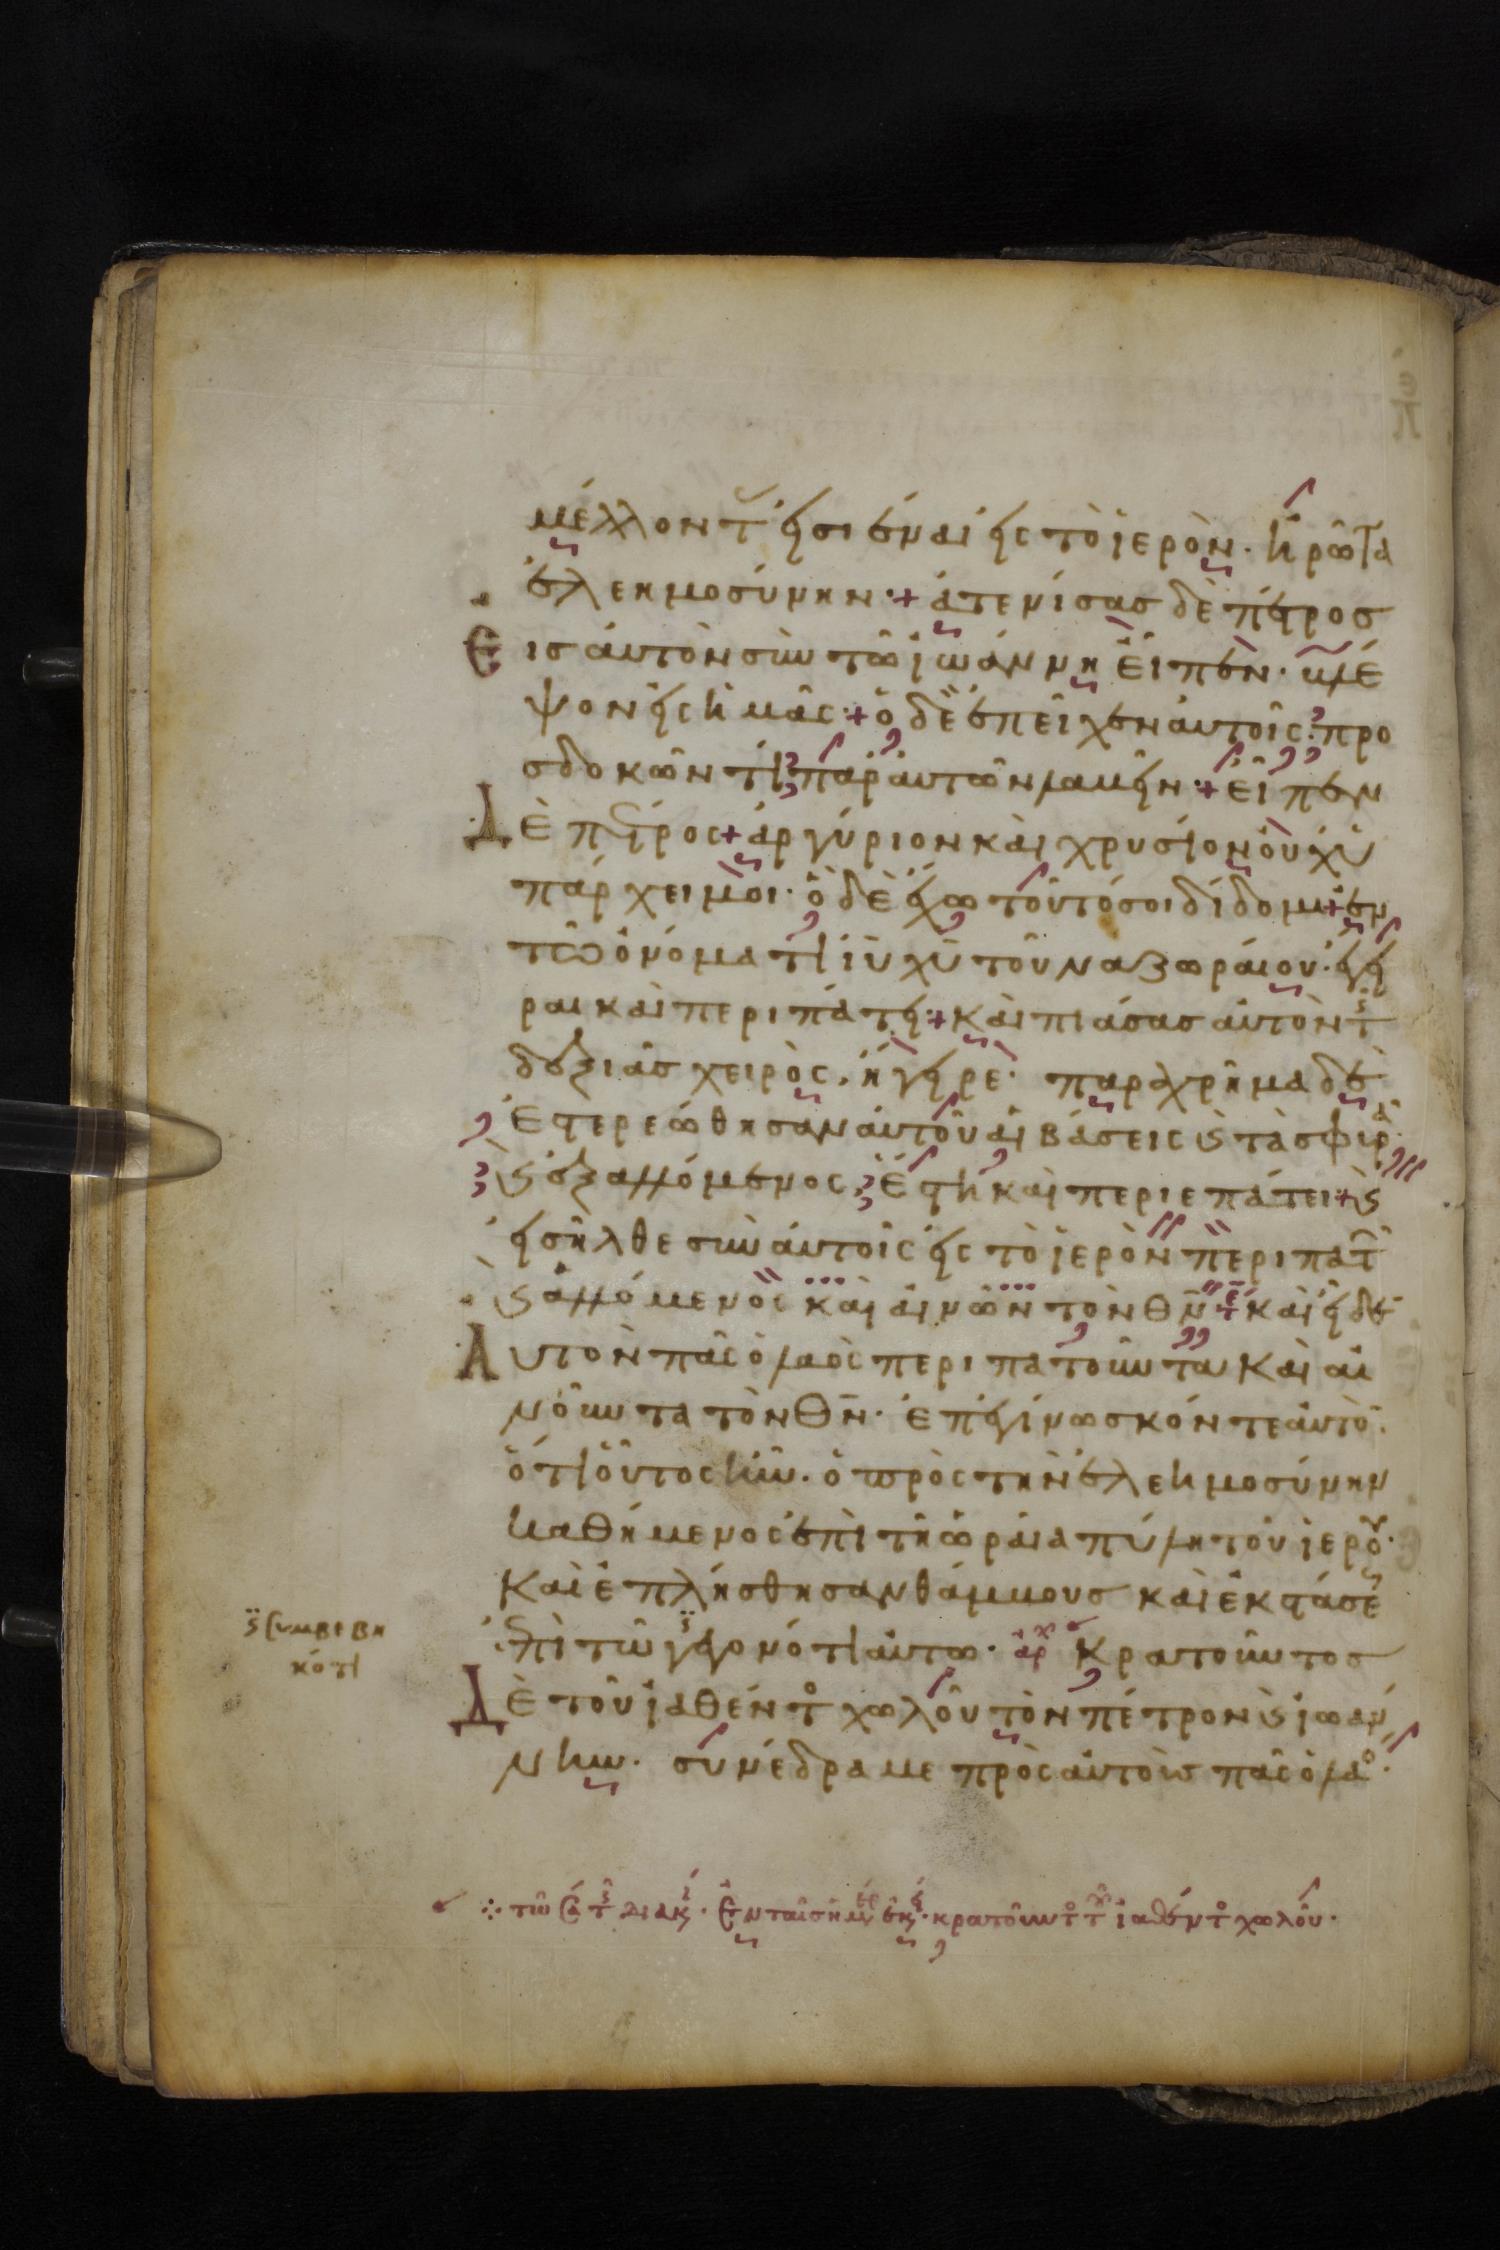 μέλλοντ εἰσιέναι εἰς τὸ ἱερὸν· ἠρῶτα
ἐλεημοσύνην·+ ἀτενίσας δὲ πέτρος
εἰς αὐτὸν σὺν τῶ ἰωάννη εἶπεν· βλέ
ψον εἰς ἡμᾶς·+ ὁ δὲ ἐπεῖχεν αὐτοῖς· προ
σδοκῶν τι παρ αὐτῶν λαβεῖν·+ εἶπεν
δὲ πέτρος+ ἀργύριον καὶ χρυσίον οὐχ ὑ
πάρχει μοι· ὃ δὲ ἔχω τοῦτό σοι δίδομι+ ἐν
τῶ ὀνόματι ἰῦ χῦ τοῦ ναζωραίου· ἔγει
ραι καὶ περιπάτει·+ καὶ πιάσας αὐτὸν τ
δεξιᾶς χειρὸς, ἤγειρε· παραχρῆμα δὲ
ἐστερεώθησαν αὐτοῦ αἱ βάσεις ϗ τὰ σφυρά·
ϗ ἐξαλλόμενος, ἔστη καὶ περιεπάτει+ ϗ
εἰσῆλθε σὺν αὐτοῖς εἰς τὸ ἱερὸν περιπατ
ϗ ἁλλόμενος καὶ αἰνῶν τὸν θν τε καὶ εἶδε
αὐτὸν πᾶς ὁ λαὸς περιπατοῦντα καὶ αἰ
νοῦντα τὸν θν· ἐπεγίνωσκόν τε αὐτὸ
ὅτι οὗτος ἦν· ὁ πρὸς τὴν ἐλεημοσύνην
καθήμενος ἐπὶ τῆ ὡραία πύλη τοῦ ἱεροῦ·
καὶ ἐπλήσθησαν θάμβους καὶ ἐκστάσε
ἐπὶ τῶ γεγονότι αὐτω· ἀρχ κρατοῦντος
ϗ συμβεβη
κότι
δὲ τοῦ ἰαθέντο χωλοῦ τὸν πέτρον ϗ ἰωάν
νην· συνέδραμε πρὸς αὐτοὺς πᾶς ὁ λαο·
τῶ διακ· ἐν ταῖς ἡμ ἐκ· κρατοῦντο τ ἰαθέντο χωλοῦ·